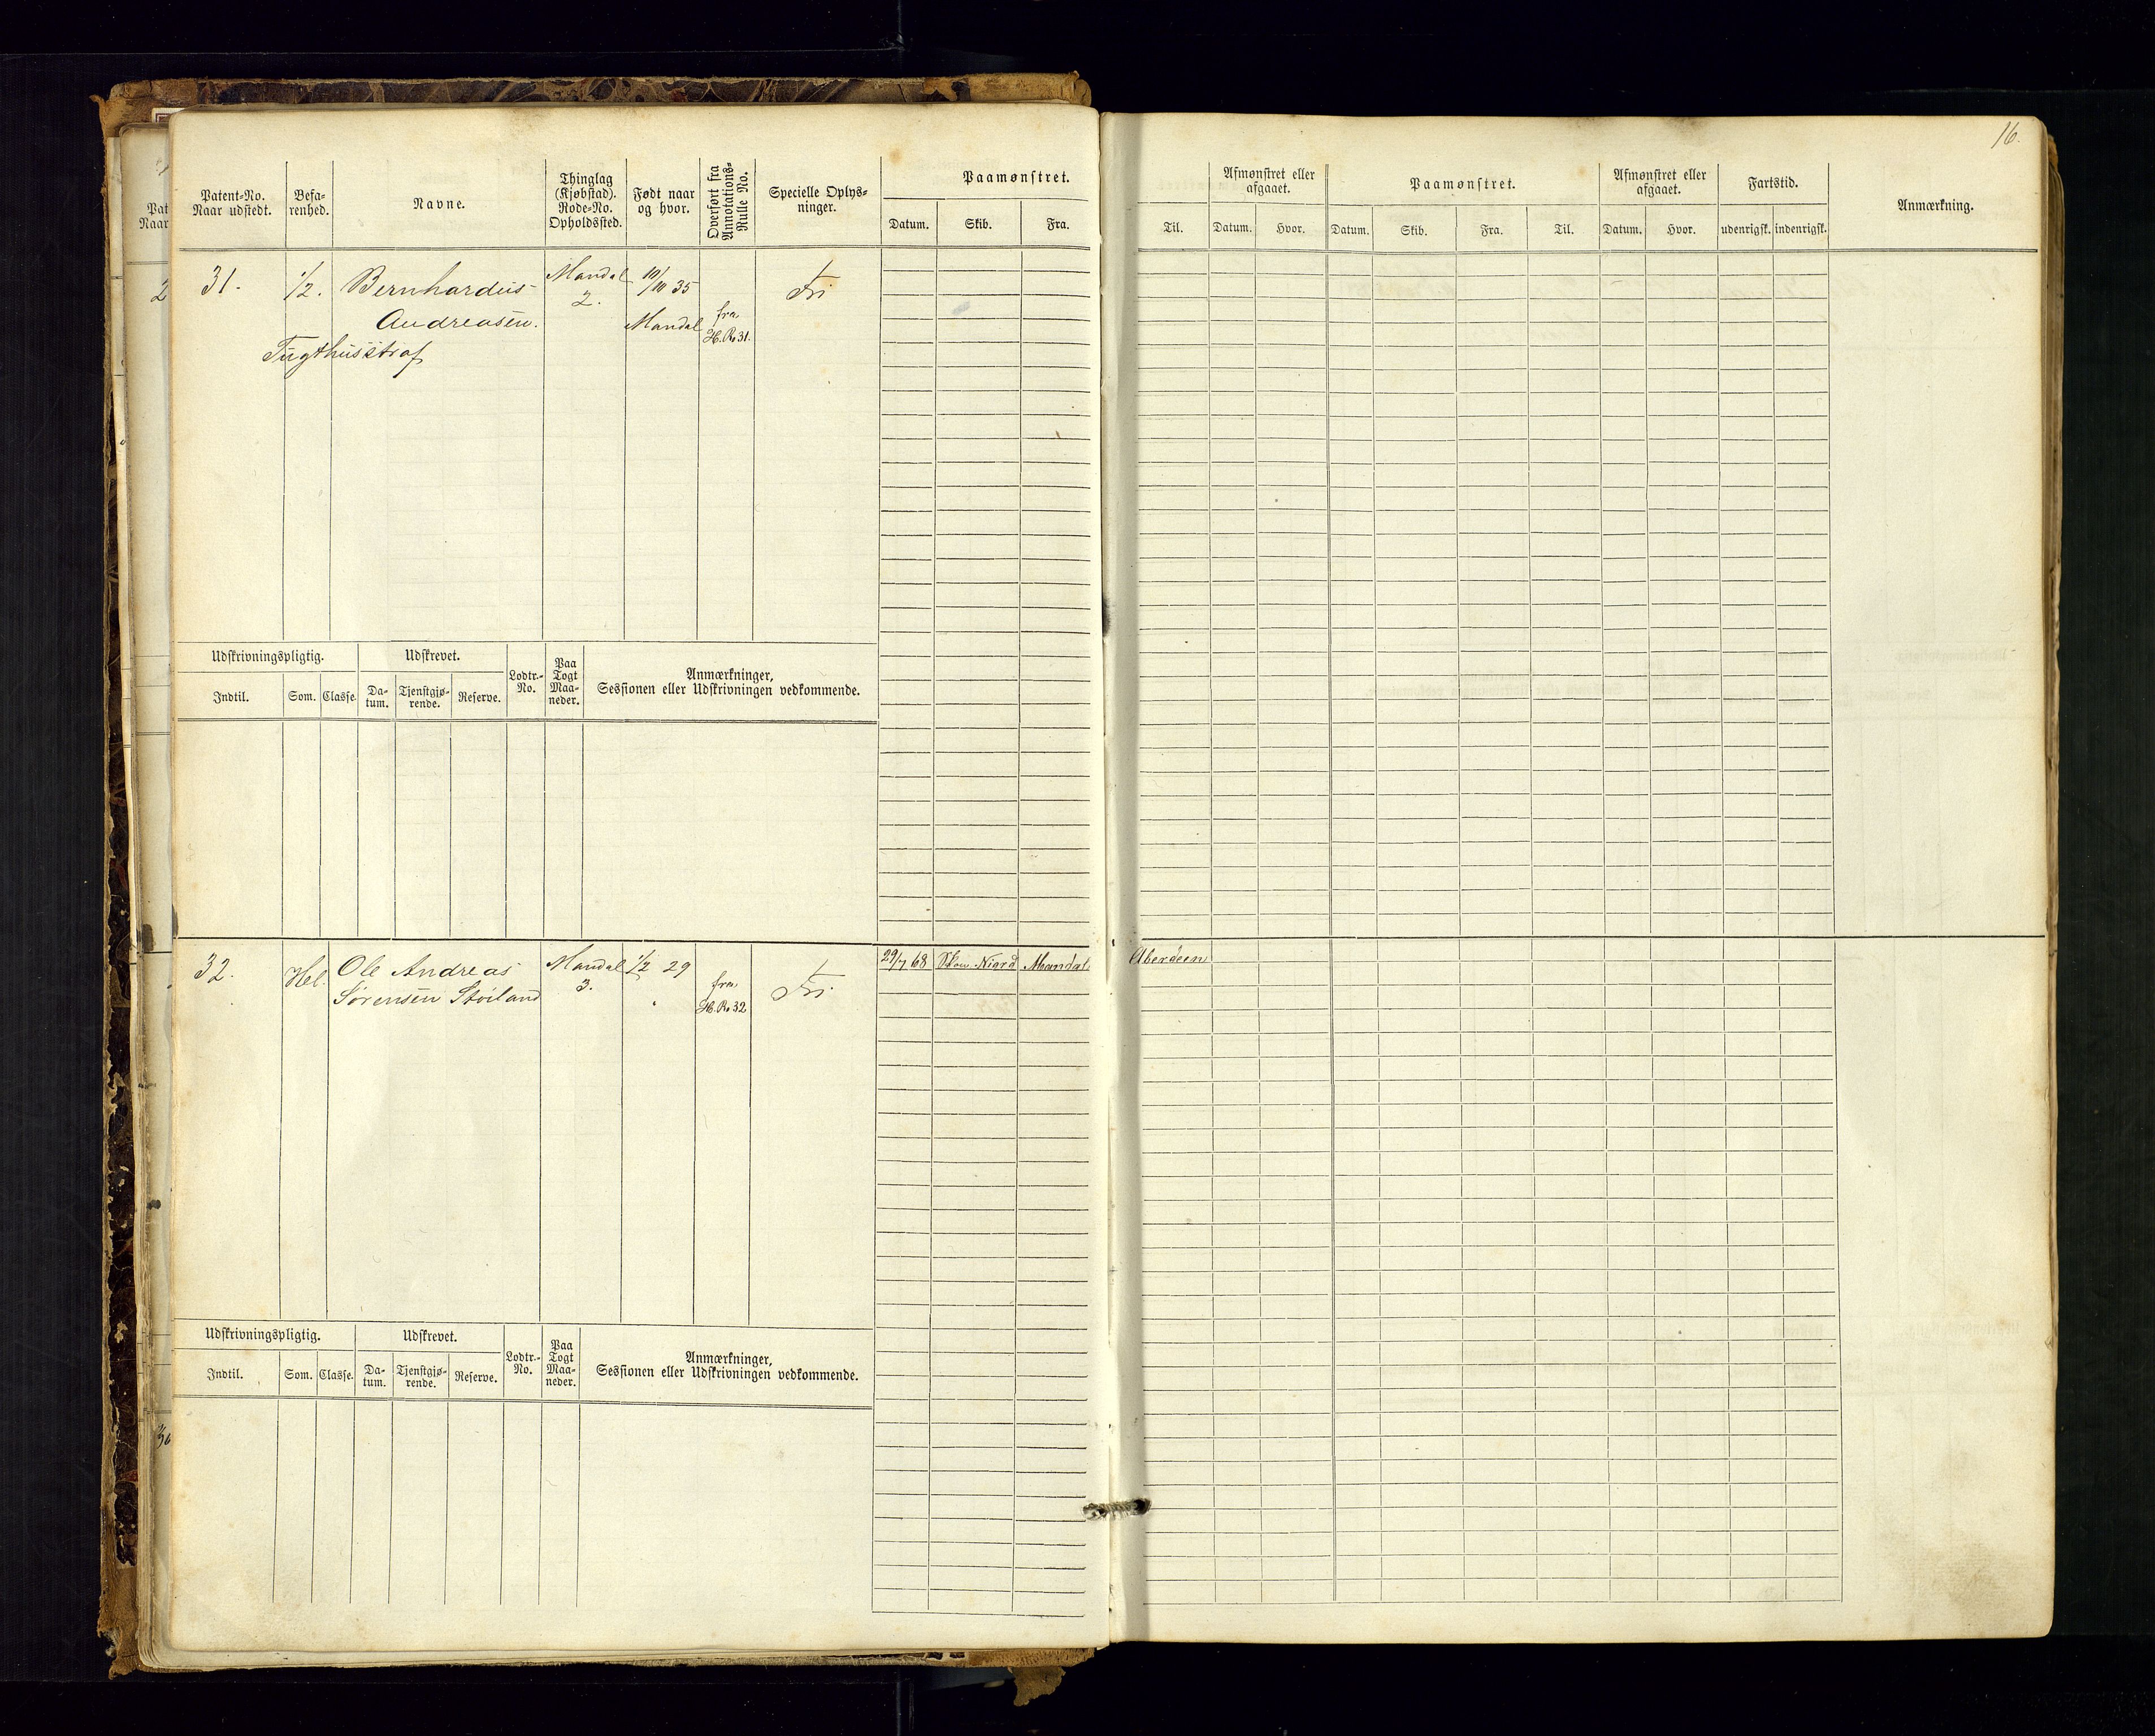 16.
Patent-No.
Naar udstedt.
Befa-
renhed.
Navne.
Thinglag
(Kjøbstad).
Rode-No.
Opholdssted.
Født naar
og hvor.
Overført fra
Annotations-
Rulle No.
Specielle Oplys-
ninger.
Paamønstret.
Datum.
Skib.
Fra.
Til.
Afmønstret eller
afgaaet.
Datum.
Hvor.
Paamønstret.
Datum.
Skib.
Fra.
Til.
Afmønstret eller
afgaaet.
Datum.
Hvor.
Fartstid.
udenrigsk.
indenrigsk.
Anmærkning.
31.
1/2.
Bernhardus
Andreasen.
Tugthusstraf
Mandal
2.
10/10 35
Mandal
fra
H.R. 31.
Fri
Udskrivningspligtig.
Indtil.
Som.
Classe.
Udskrevet.
Da-
tum.
Tjenstgjø-
rende.
Reserve.
Lodtr.-
No.
Paa
Togt
Maa-
neder.
Anmærkninger,
Sessionen eller Udskrivningen vedkommende.
32.
Hel.
Ole Andreas
Sørensen Støiland
Mandal
3.
1/2 29
fra
H.R. 32
Fri
29/7 68
Skon. Niord
Mandal
Aberdeen
Udskrivningspligtig.
Indtil.
Som.
Classe.
Udskrevet.
Da-
tum.
Tjenstgjø-
rende.
Reserve.
Lodtr.-
No.
Paa
Togt
Maa-
neder.
Anmærkninger,
Sessionen eller Udskrivningen vedkommende.